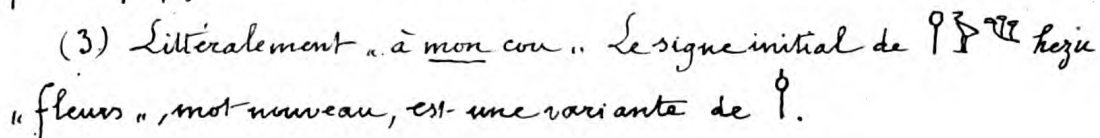 (3) Littéralement „ à mon cou „ Le signe initial de 𓌉𓊃𓆰 heziu
„ fleurs „, mot nouveau, est une variante de 𓌉.